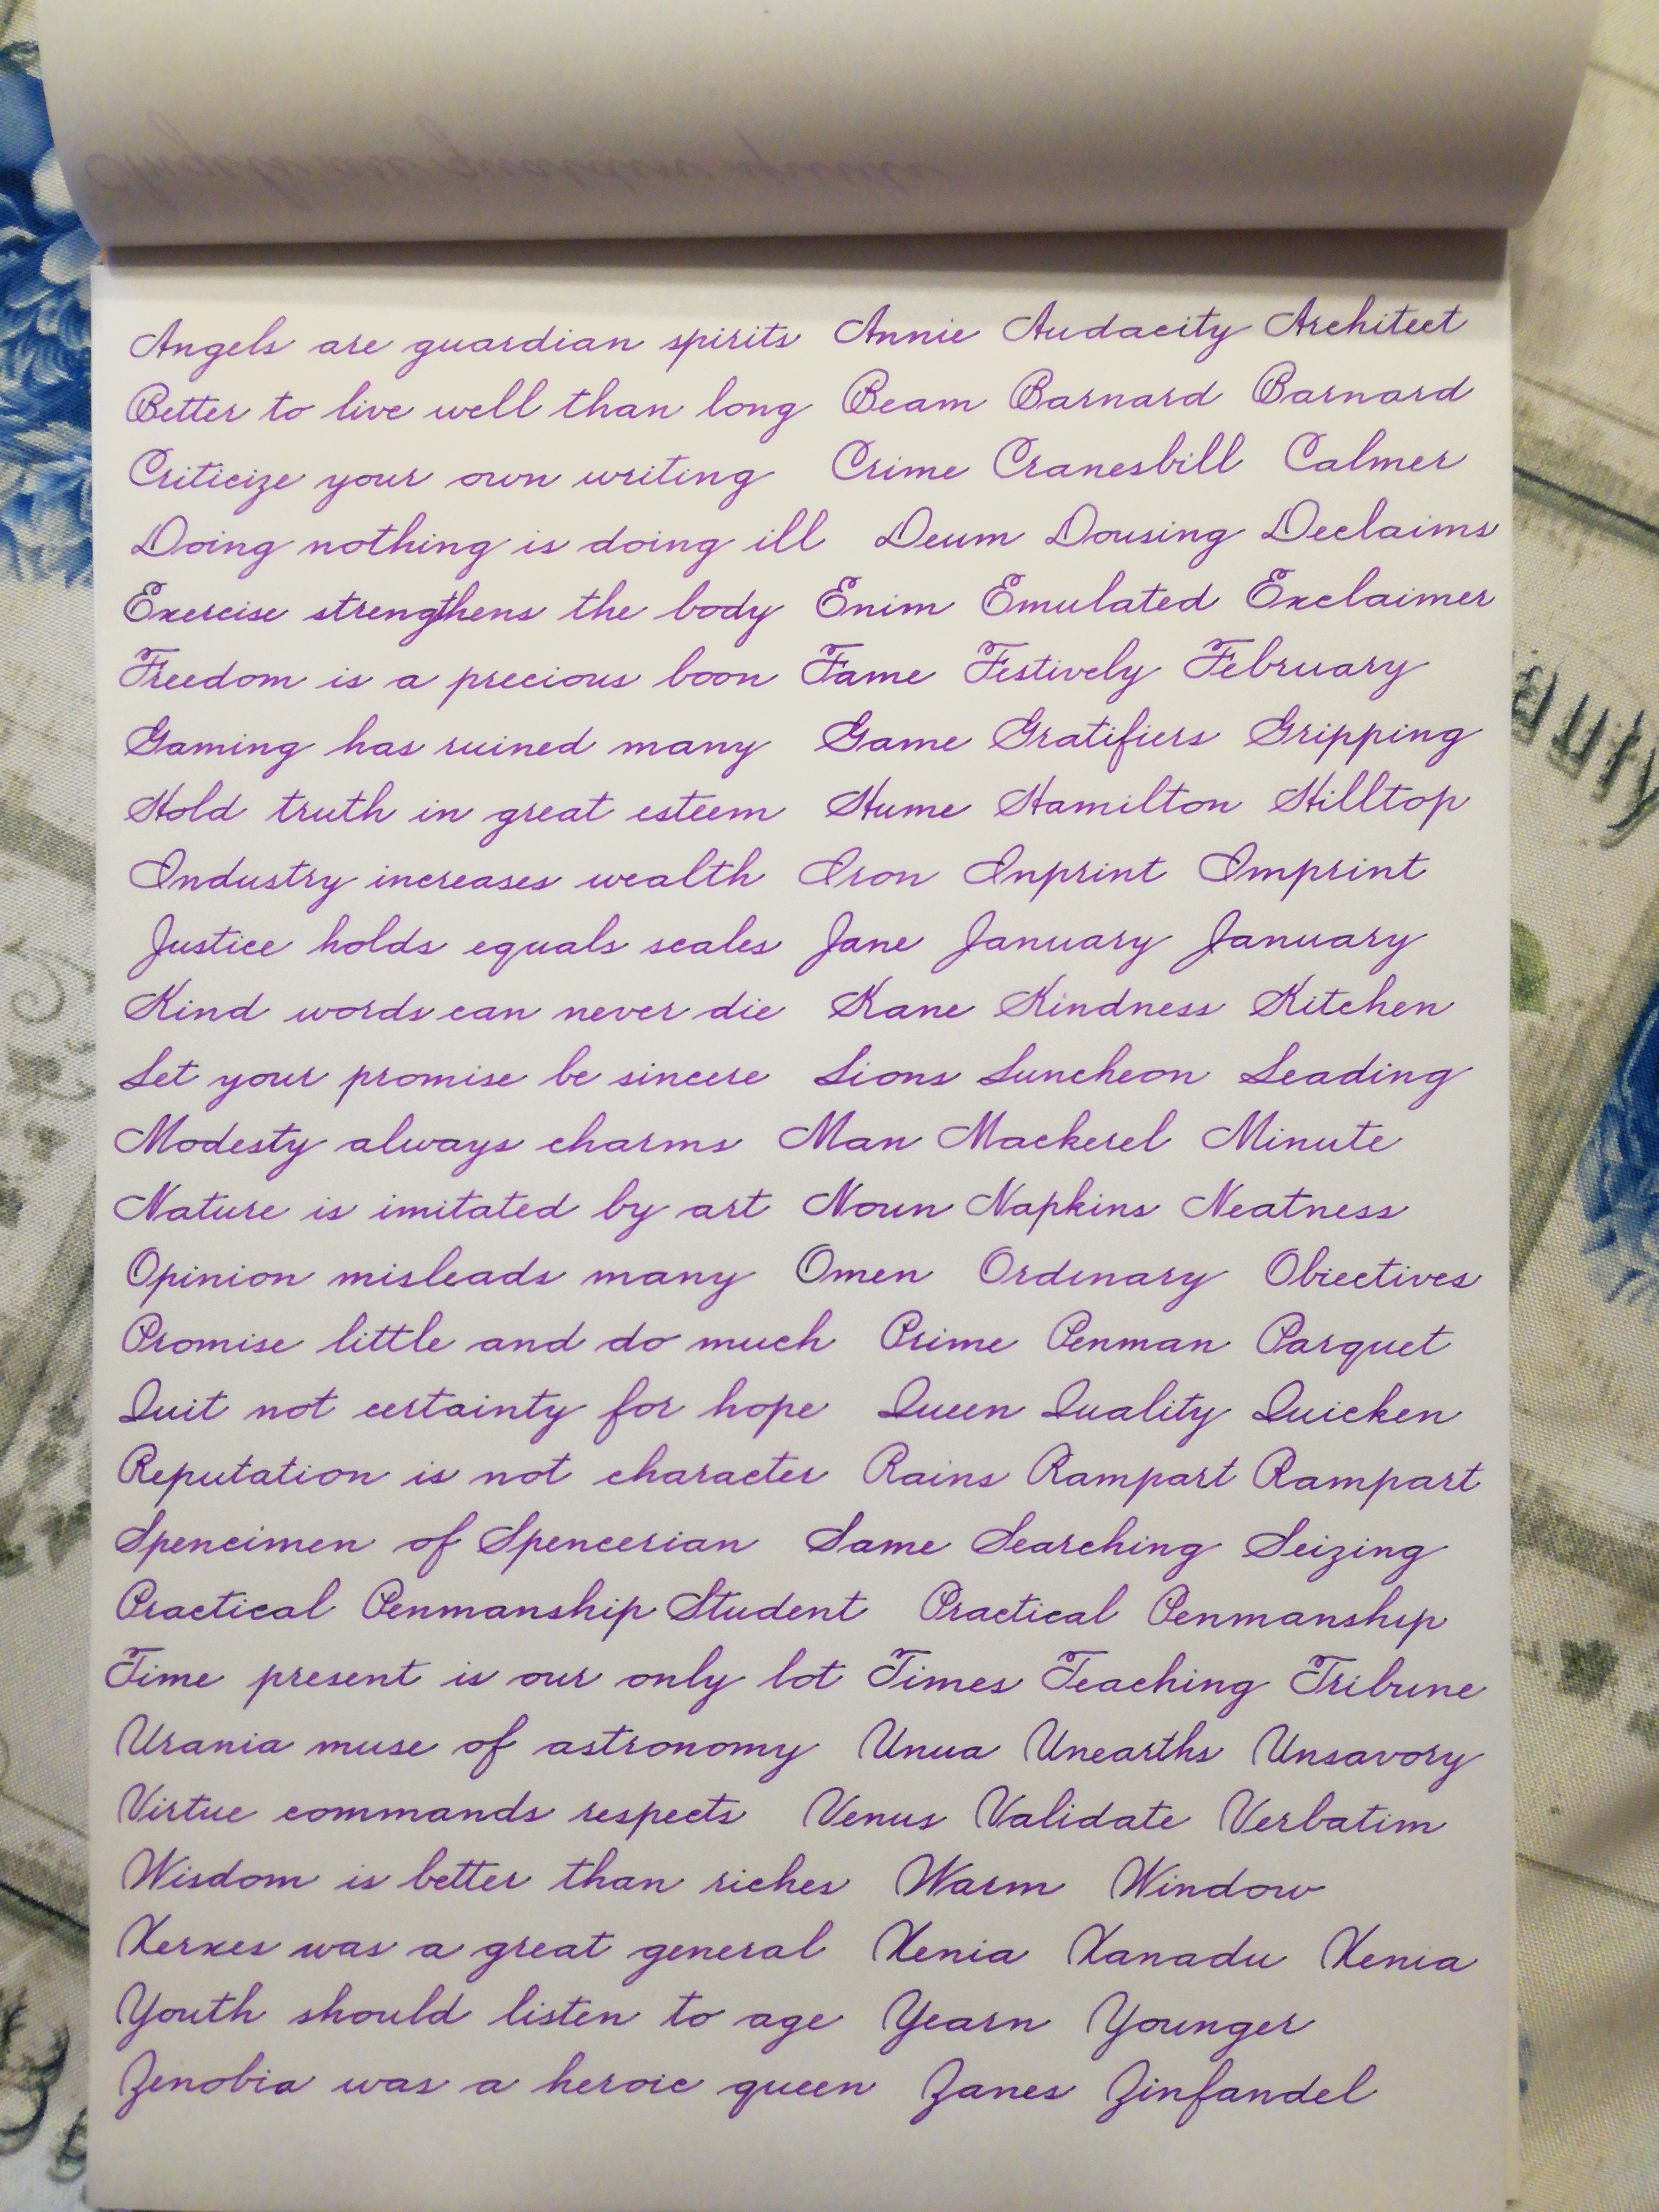 Angels are guardian spirits Annie Audacity Architect
Better to live well than long Beam Barnard Barnard
Criticize your own writing Crime Cranesbill Calmer
Doing nothing is doing ill Deum Dousing Declaims
Exercise strengthens the body Enim Emulated Exclaimer
Freedom is a precious boon Fame Festively February
Gaming has ruined many Game Gratifiers Gripping
Hold truth in great esteem Hume Hamilton Hilltop
Industry increases wealth Iron Inprint Imprint
Justice holds equals scales Jane January January
Kind words can never die Kane Kindness Kitchen
Let your promise be sincere Lions Luncheon Leading
Modesty always charms Man Mackerel Minute
Nature is imitated by art Noun Napkins Neatness
Opinion misleads many Omen Ordinary Obiectives
Promise little and do much Prime Penman Parquet
Quit not certainty for hope Queen Quality Quicken
Reputation is not character Rains Rampart Rampart
Spencimen of Spencerian Same Searching Seizing
Practical Penmanship Student Practical Penmanship
Time present is our only lot Times Teaching Tribune
Urania muse of astronomy Unua Unearths Unsavory
Virtue commands respects Venus Validate Verbatim
Wisdom is better than riches Warm Window
Xerxes was a great general Xenia Xanadu Xenia
Youth should listen to age Yearn Younger
Zenobia was a heroic queen Zanes Zinfandel